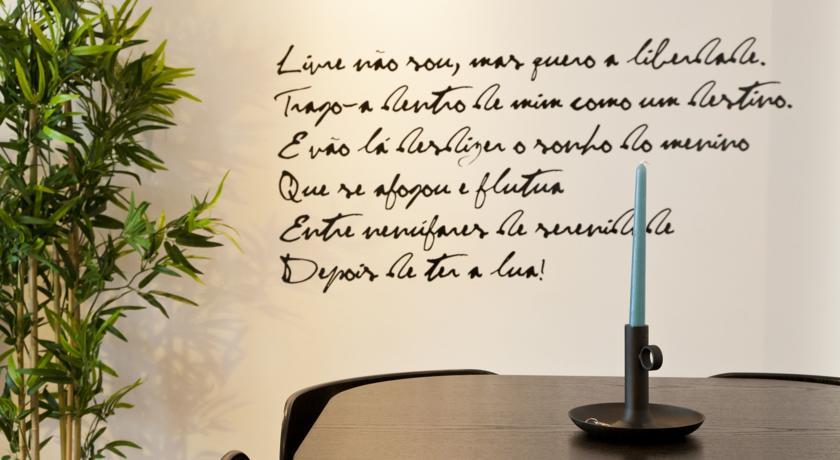 Livre não sou, mas quero a liberdade.
Trago-a dentro de mim como um destino.
E vão lá desdizer o sonho do menino
Que se afogou e flutua
Entre nenúfares de serenidade
Depois de ter a lua!